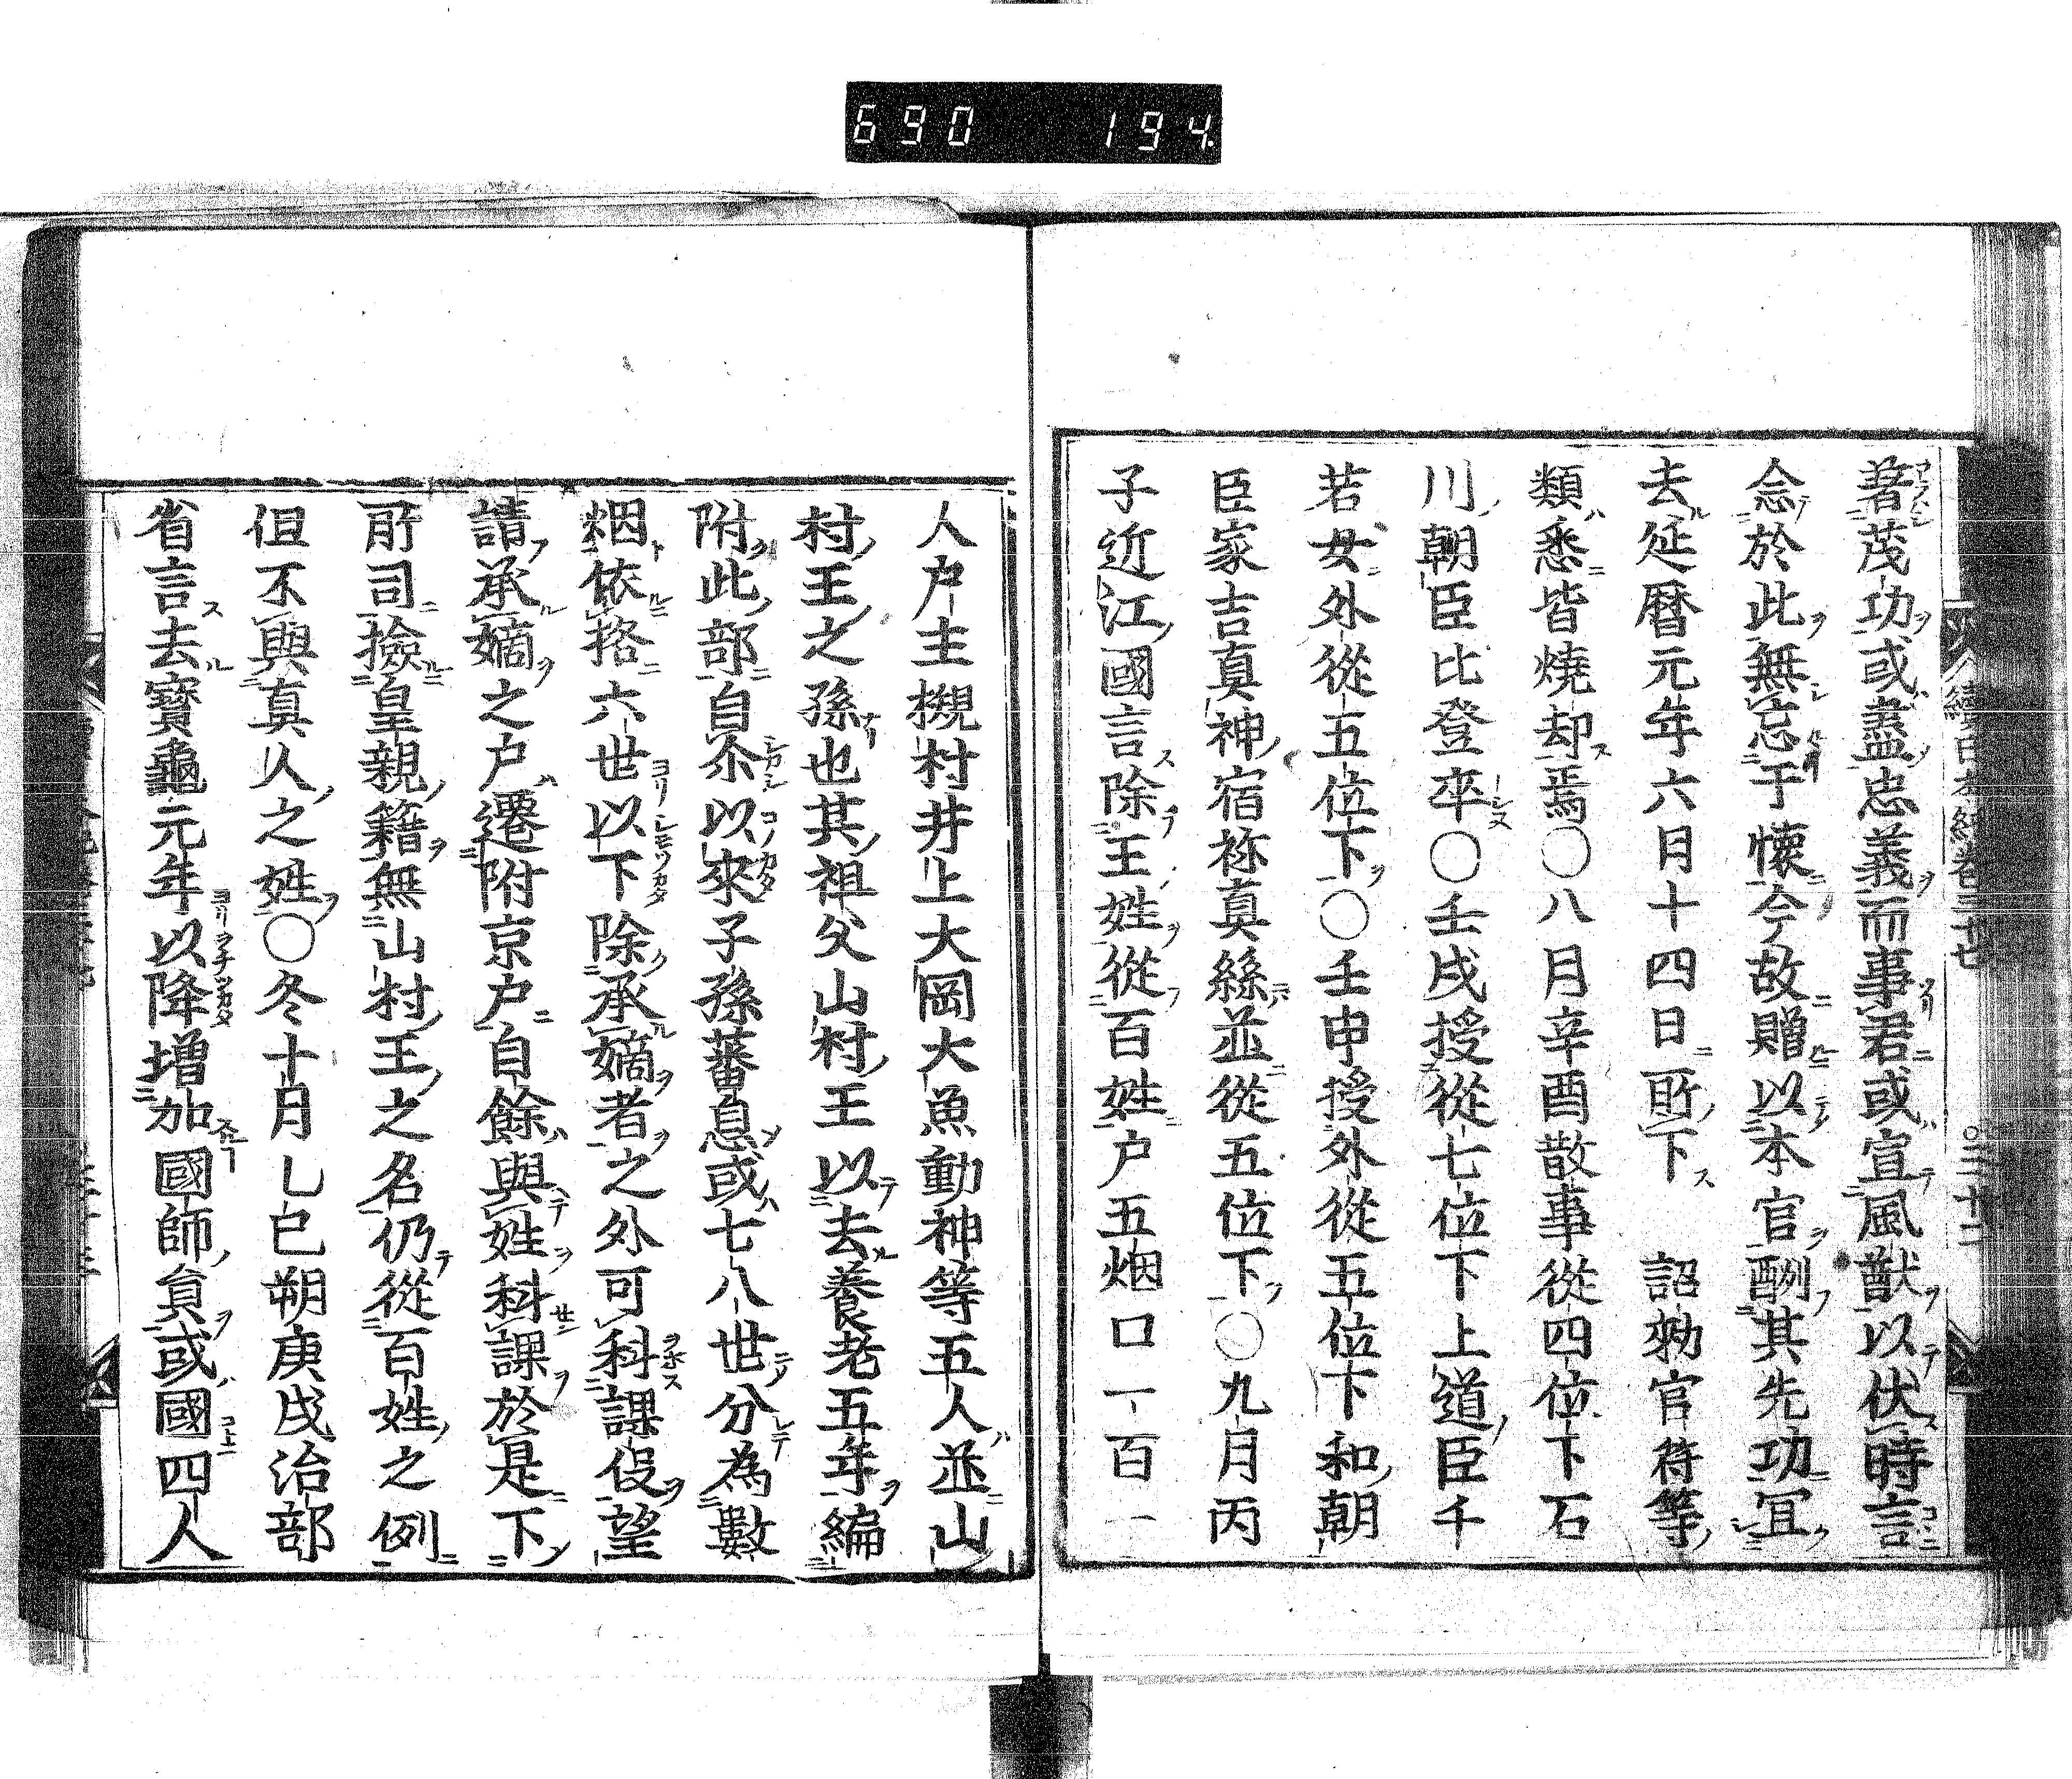 690 194
著茂功或盡忠義而事君或宣風猷以伏時言
念於此無忘于懷今故贈以本官酬其先功冝
去延曆元年六月十四日所下 詔勑官符等
類悉皆燒却焉〇八月辛酉散事從四位下石
川朝臣比登卒〇壬戌授從七位下上道臣千
若女外從五位下〇壬申授外從五位下和朝
臣家吉真神宿祢真絲並從五位下〇九月丙
子近江國言除王姓從百姓戸五烟口一百一
人戸主槻村井上大岡大魚動神等五人並山
村王之孫也其祖父山村王以去養老五年編
附此部自尒以來子孫蕃息或七八世分為數
烟依挌六世以下除承嫡者之外可科課伇望
請承嫡之戸遷附京戸自餘與姓科課於是下
所司撿皇親籍無山村王之名仍從百姓之例
但不與真人之姓〇冬十月乙巳朔庚戌治部
省言去寳龜元年以降增加國師貟或國四人